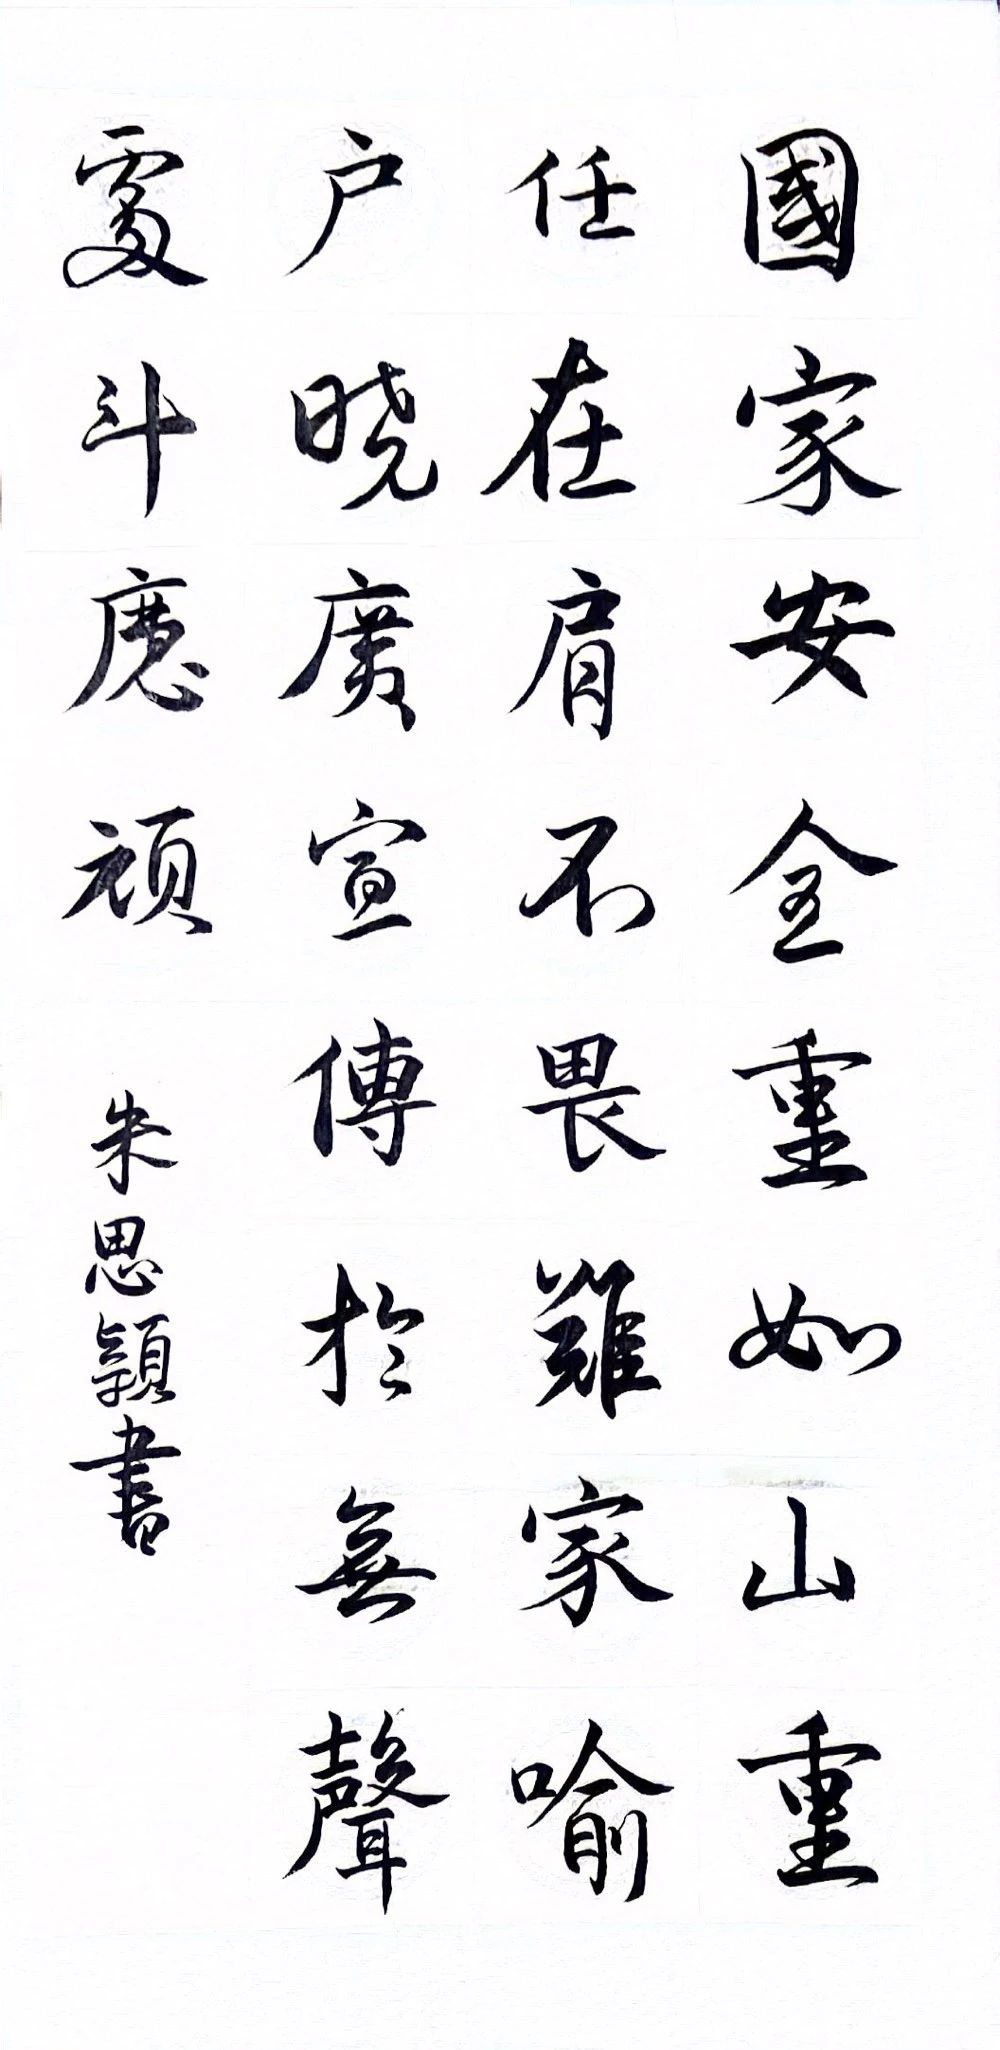 國家安全重如山重
任在肩不畏難家喻
户晓廣宣傳於無聲
處斗應頑
朱思穎書